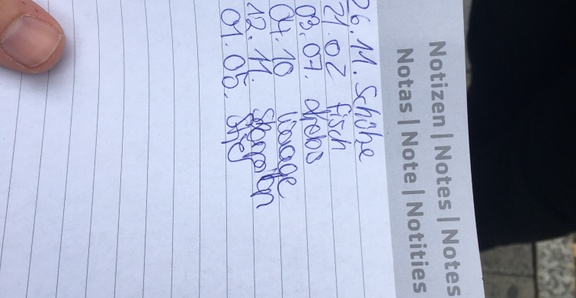 Notizen | Notes | Notes
Notas | Note | Notities
26.11. Schütze
21.02 fisch
03.07. drebs
04.10 waage
12.11. skorpion
01.05. stier